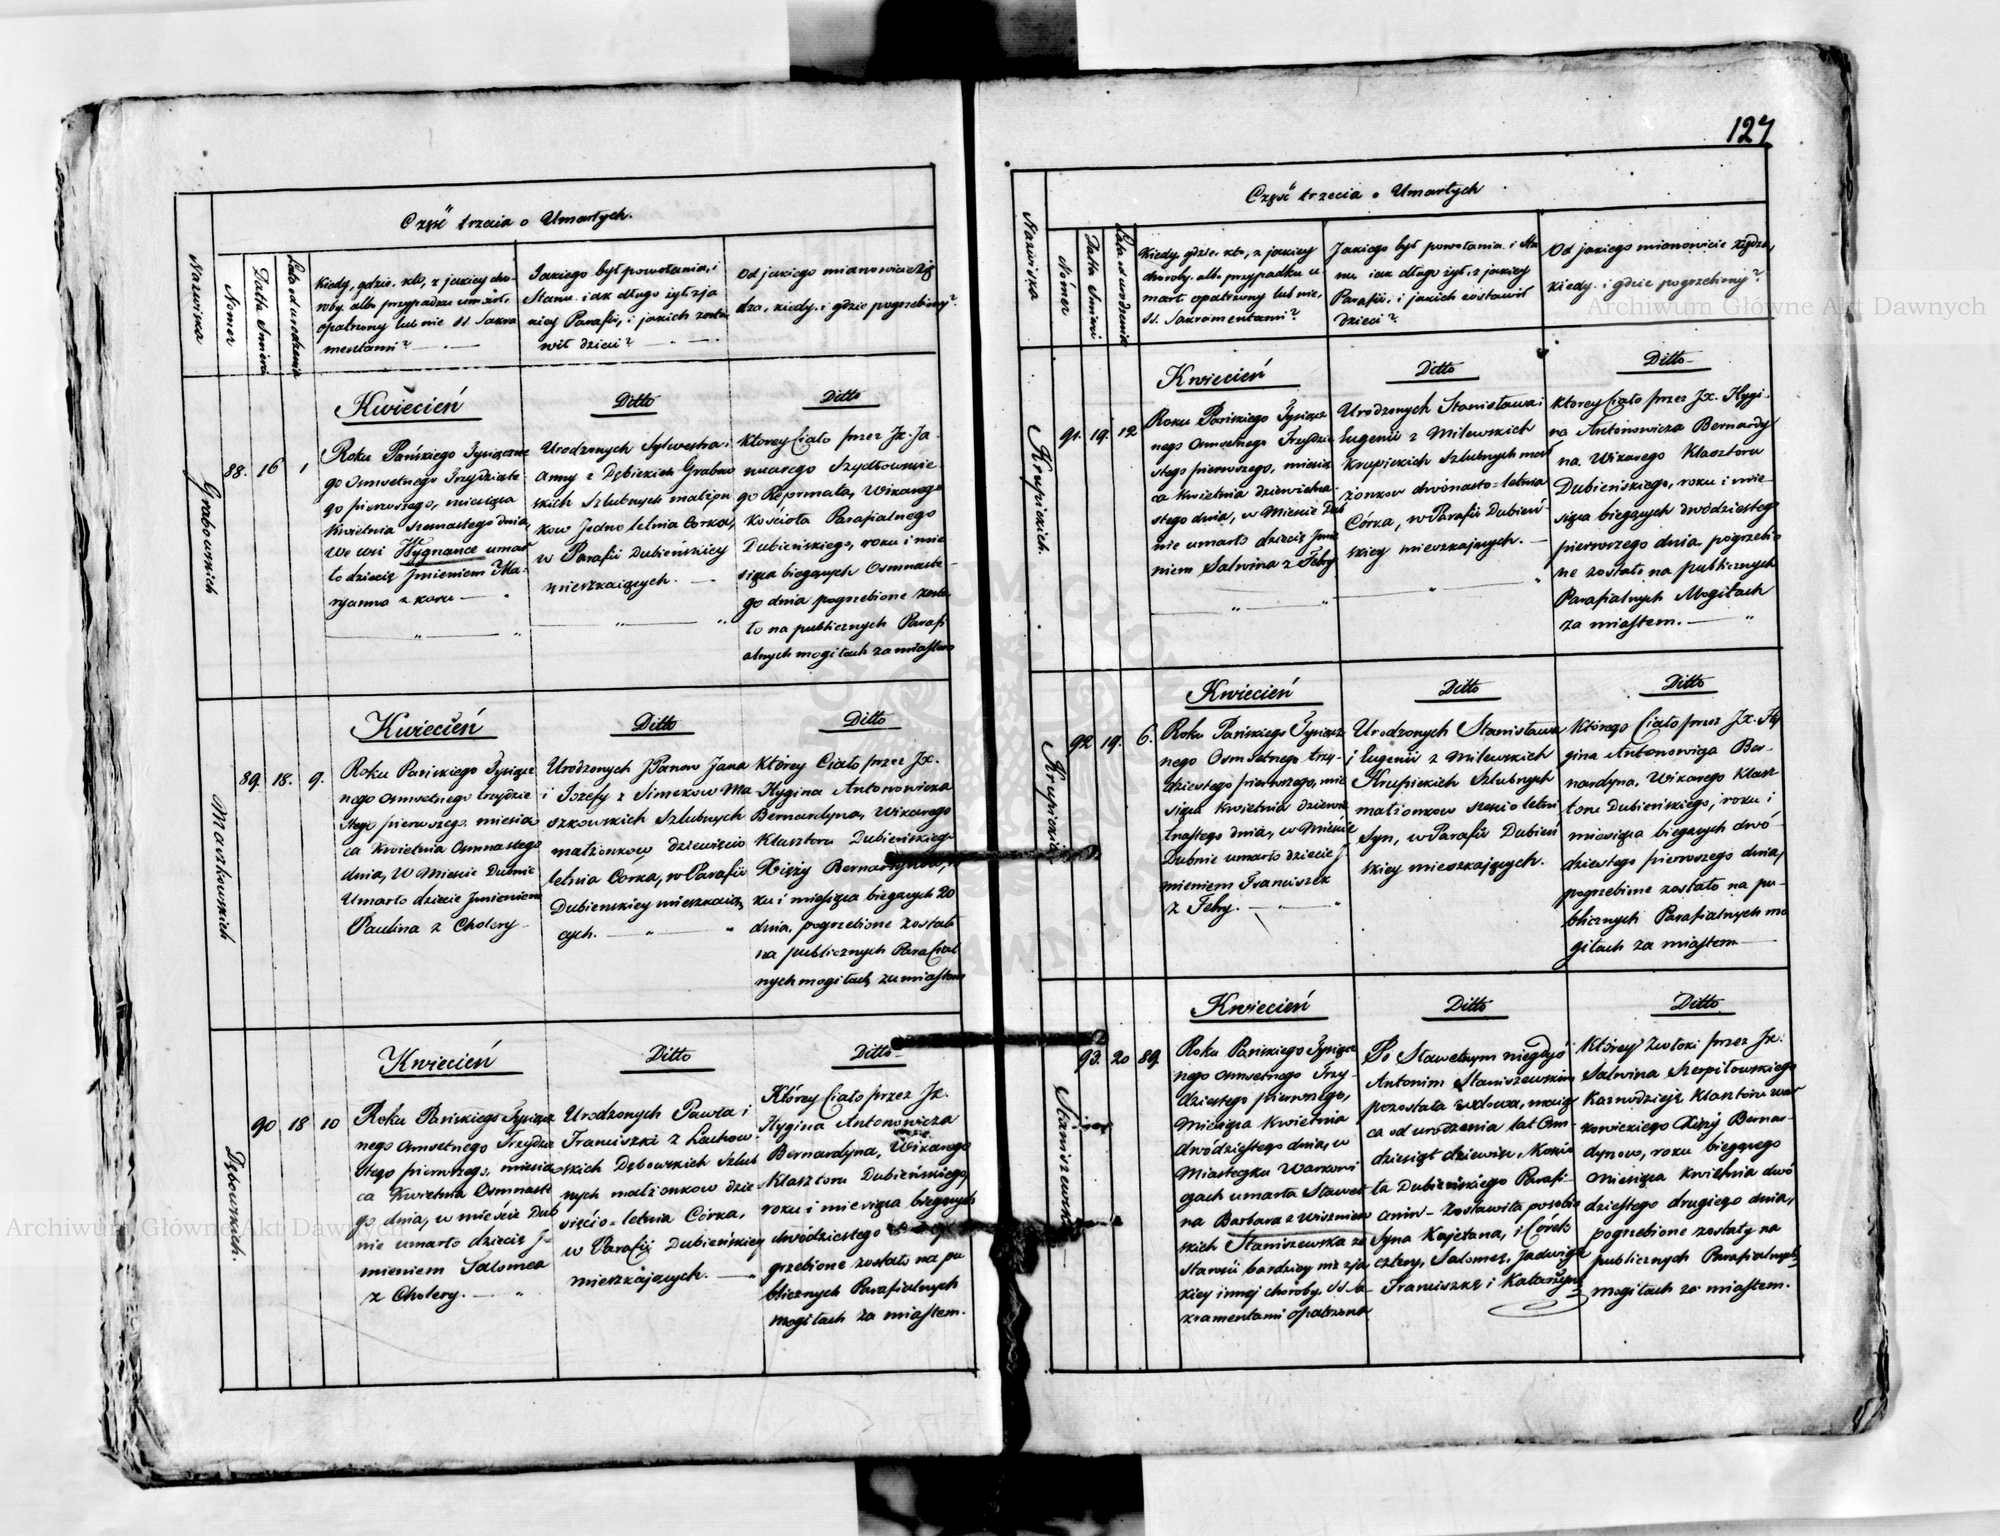 Część trzecia o Umarłych.
Nazwiska
Numer
Datta Smierci
Lata od urodzenia
Kiedy, gdzie, kto, z jakiey cho-
roby, albo przypadku umarł,
opatrzony lub nie SS Sakra
mentami?
Jakiego był powołania, i
Stanu, iak długo żył, z ja
kiey Parafii, i jakich zosta
wił dzieci?
Od jakiego mianowicie Xię
dza, kiedy, i gdzie pogrzebiony?
Grabowskich
88. 16 1
Kwiecień
Roku Pańskiego Tysiączne
go Osmsetnego Trzydziste
go pierwszego, miesiąca
Kwietnia szesnastego dnia,
We wsi Wygnance umar
ło dziecię Jmieniem Ma-
ryanna z koru
Ditto
Urodzonych Sylwestra i
Anny z Dębickich Grabow
skich Szlubnych małżon
kow Jedno letnia Corka,
w Parafii Dubieńskiey
mieszkaiących.
Ditto
Ktorey Ciało przez Jx. Ja-
nuarego Szydłowskie
go Reformata, Wikarego
Kościoła Parafialnego
Dubieńskiego, roku i mie
siąca bieguących Osmnaste-
go dnia pogrzebione zosta-
ło na publicznych Parafi
alnych mogiłach za miastem
Maszkowskich
89. 18. 9.
Kwiecień
Roku Pańskiego Tysiącz
nego Osmsetnego trzydzie
stego pierwszego, miesią
ca Kwietnia Osmnastego
dnia, W Miescie Dubnie
Umarło dziecie Jmieniem
Paulina z Cholery
Ditto
Urodzonych JPanow Jana
i Jozefy z Simekow Ma
szkowskich Szlubnych
małżonkow dziewięcio
letnia Corka, w Parafii
Dubienskiey mieszkaią
cych.
Ditto
Którey Ciało przez Jx.
Hygina Antonowicza
Bernardyna, Wikarego
Klasztoru Dubieńskiego
Xięży Bernardynow, ro
ku i miesiąca bieguących 20
dnia, pogrzebione zostało
na publicznych Parafial
nych mogiłach za miastem
Dębowskich.
90 18 10
Kwiecień
Roku Pańskiego Tysiącz
nego Osmsetnego Trzydzie
stego pierwszego, miesią
ca Kwietnia Osmnaste
go dnia, w miescie Dub
nie umarło dziecię J-
mieniem Salomea
z Cholery.
Ditto
Urodzonych Pawła i
Franciszki z Lachow-
skich Dębowskich Szlub
nych małżonkow dzie-
sięcio-letnia Córka,
w Parafii Dubieńskiey
mieszkających.
Ditto
Którey Ciało przez Jx.
Hygina Antonowicza
Bernardyna, Wikarego
Klasztoru Dubieńskiego,
roku i miesiąca bieguących
dwódziestego
grzebione zostało na pu
blicznych Parafialnych
mogiłach za miastem.
127
Część trzecia o Umarłych
Nazwiska
Nómer
Datta Smierci
Lata od urodzenia
Kiedy, gdzie, kto, z jakiey
choroby, albo przypadku u
marł, opatrzony lub nie,
SS. Sakramentami?
Jakiego był powołania, i Sta
nu, iak długo żył, z jakiey
Parafii, i jakich zostawił
dzieci?
Od jakiego mianowicie Xiędza,
kiedy, i gdzie pogrzebiony?
Krupickich.
91. 19. 12
Kwiecień
Roku Pańskiego Tysiącz
nego Osmsetnego Trzydzie
stego pierwszego, miesią
ca Kwietnia dziewietna-
stego dnia, w Miescie Dub
nie umarło dziecię Jmie
niem Salwina z Febry
Ditto
Urodzonych Stanisława i
Eugenii z Milewskich
Krupickich Szlubnych mał
żonkow dwónasto-letnia
Córka, w Parafii Dubień-
skiey mieszkających.
Ditto
Ktorey Ciało przez Jx. Hygi-
na Antonowicza Bernardy
na, Wikarego Klasztoru
Dubieńskiego, roku i mie-
siąca bieguących dwódziestego
pierwszego dnia pogrzebio
ne zostało na publicznych
Parafialnych Mogiłach
za miastem.
Krupickich
92 19. 6.
Kwiecień
Roku Pańskiego Tysiącz
nego Osmsetnego trzy-
dziestego pierwszego, mie
siąca Kwietnia dziewie
tnastego dnia, w Mieście
Dubnie umarło dziecie J
mieniem Franciszek
z Febry.
Ditto
Urodzonych Stanisława
i Eugenii z Milewskich
Krupickich Szlubnych
małżonkow szescio letni
Syn, w Parafii Dubień
skiey mieszkających.
Ditto
Którego Ciało przez Jx. Hy
gina Antonowicza Ber-
nardyna, Wikarego Klasz
toru Dubieńskiego, roku i
miesiąca bieguących dwó-
dziestego pierwszego dnia,
pogrzebione zostało na pu-
blicznych Parafialnych mo
giłach za miastem
Staniszewska
93. 20 89.
Kwiecień
Roku Pańskiego Tysiącz
nego Osmsetnego Trzy-
dziestego pierwszego,
Miesiąca Kwietnia
dwódziestego dnia, w
Miasteczku Warkowi
czach umarła Sławet
na Barbara z Wiszniew
skich Staniszewska ze
starosci bardziey niż z ja
kiey innej choroby, SS Sa-
kramentami Opatrzona
Ditto
Po Sławetnym niegdyś
Antonim Staniszewskim
pozostała wdowa, maią
ca od urodzenia lat Osm-
dziesiąt dziewięc, Kościo
ła Dubieńskiego Parafi-
anin - Zostawiła po sobie
Syna Kajetana, i Córek
cztery, Salomeę, Jadwigę
Franciszkę i Katarzynę
Ditto
Którey Zwłoki przez Jx.
Salwina Szerpiłowskiego
Kaznodzieję Klasztoru War
kowickiego Xięży Bernar-
dynow, roku bieguącego
Miesiąca Kwietnia dwó
dziestego drugiego dnia,
pogrzebione zostały na
publicznych Parafialnych
mogiłach za miastem.
Archiwum Główne Akt Dawnych
Archiwum Główne Akt Dawnych